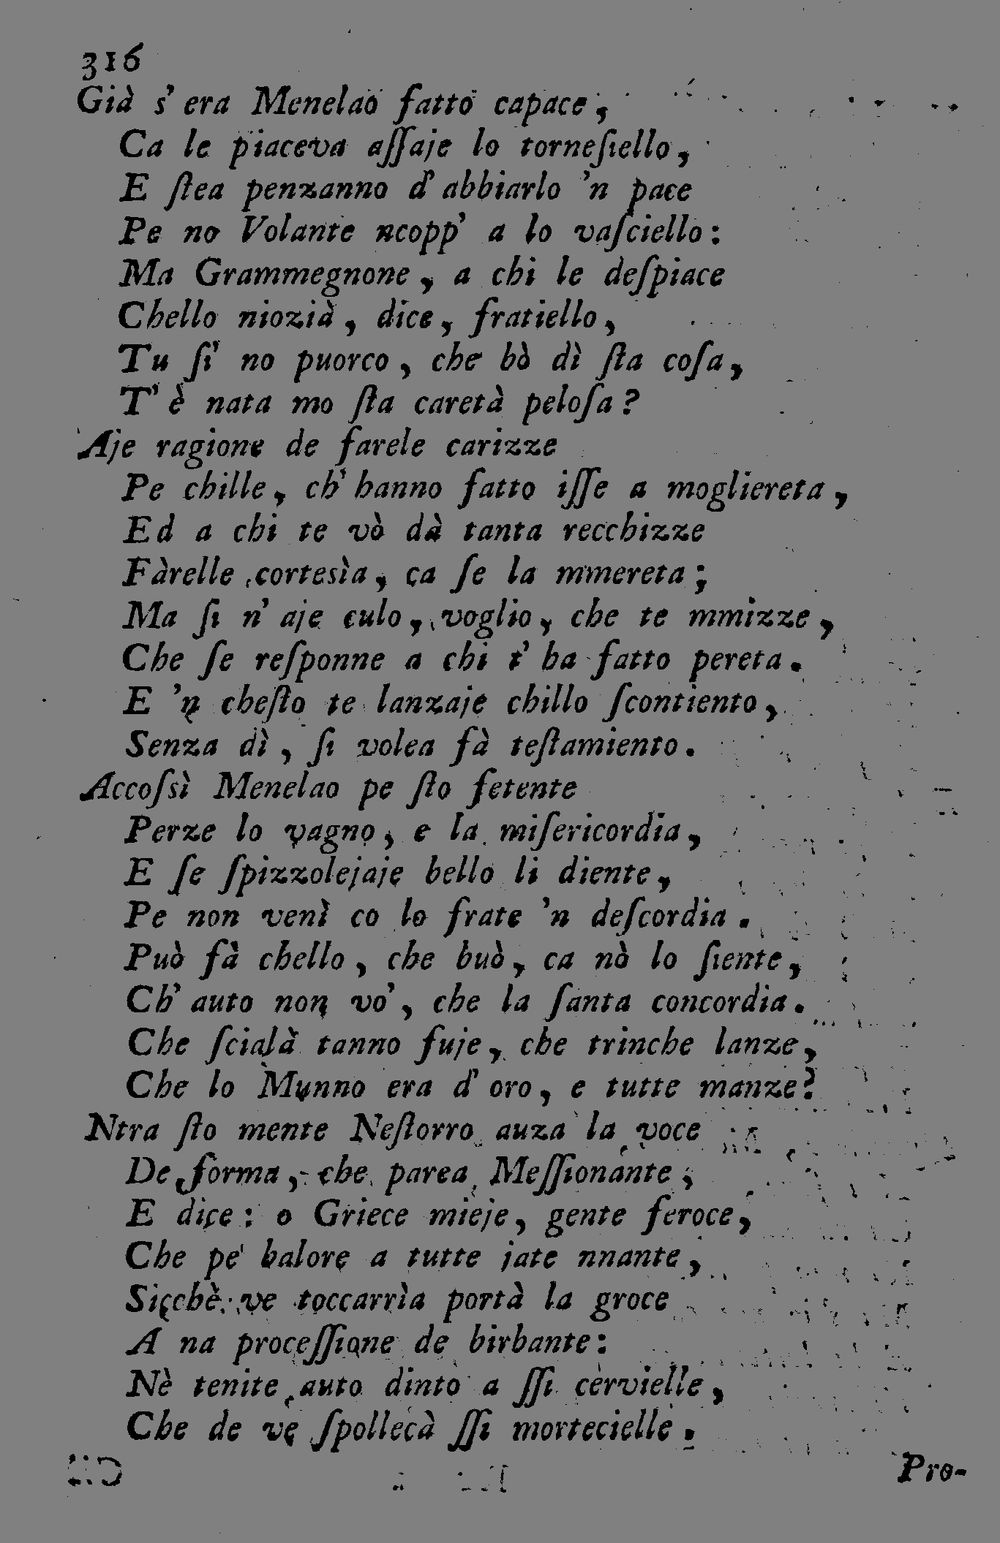 316
Già s' era Menelao fatto capace,
Ca le piaceva aſſaje lo torneſiello,
E ſtea penzanno d' abbiarlo 'n pace
Pe no Volante ncopp' a lo vaſciello:
Ma Grammegnone, a chi le deſpiace
Chello niozià, dice, fratiello,
Tu ſi' no puorco, che bò dì ſta coſa,
T' è nata mo ſta caretà peloſa?
Aje ragione de farele carizze
Pe chille, ch' hanno fatto iſſe a mogliereta,
Ed a chi te vò dà tanta recchizze
Fàrelle cortesìa, ca ſe la mmereta;
Ma ſi n' aje culo, voglio, che te mmizze,
Che ſe reſponne a chi t' ha fatto pereta.
E 'n cheſto te lanzaje chillo ſcontiento,
Senza dì, ſi volea fà teſtamiento.
Accoſsì Menelao pe ſto fetente
Perze lo vagno, e la miſericordia,
E ſe ſpizzolejaje bello li diente,
Pe non venì co lo frate 'n deſcordia.
Può fà chello, che buò, ca nò lo ſiente,
Ch' auto non vo', che la ſanta concordia.
Che ſcialà tanno fuje, che trinche lanze,
Che lo Munno era d' oro, e tutte manze?
Ntra ſto mente Neſtorro auza la voce
De forma, che parea Meſſionante,
E dice: o Griece mieje, gente feroce,
Che pe' balore a tutte jate nnante,
Sicchè ve toccarrìa portà la groce
A na proceſſione de birbante:
Nè tenite auto dinto a ſſi cervielle,
Che de ve ſpollecà ſſi mortecielle.
Pro-